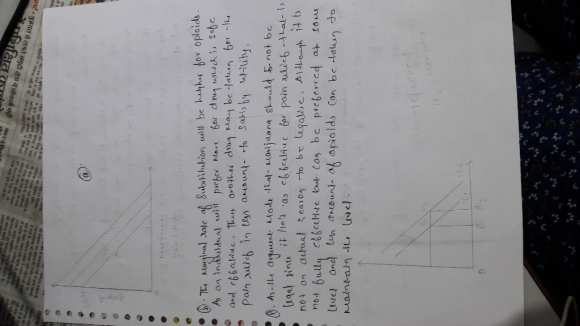 (a)
(b). The Marginal rate of Substitution will be higher for opioids.
As an individual will prefer more for drug which is safe
and effective. Thus another drug may be taken for the
pain relief in less amount to satisfy utility.
As the argument made that marijuana should not be
legal since it isn't as effective for pain relief that is
not an actual reason to be legalize. Although it is
not fully effective but can be preferred at some
level and less amount of opioids can be taken to
maintain the level.
0
0